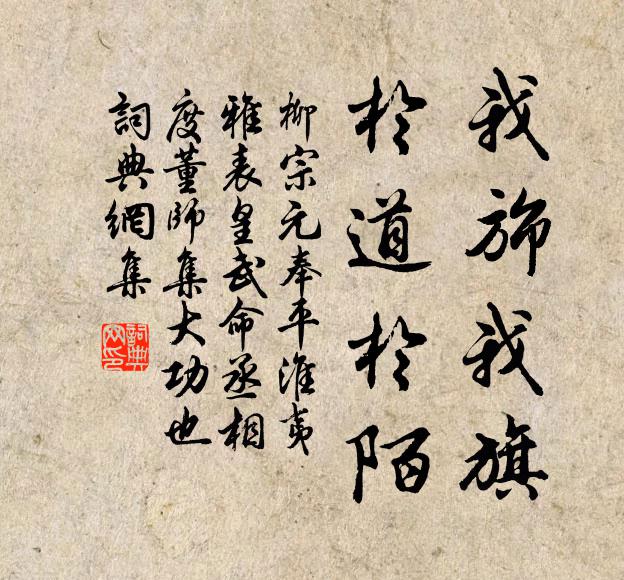 我斾我旗
於道於陌
柳宗元奉平淮夷
雅表皇武命丞相
度董師集大功也
詞典網集
詞典網印